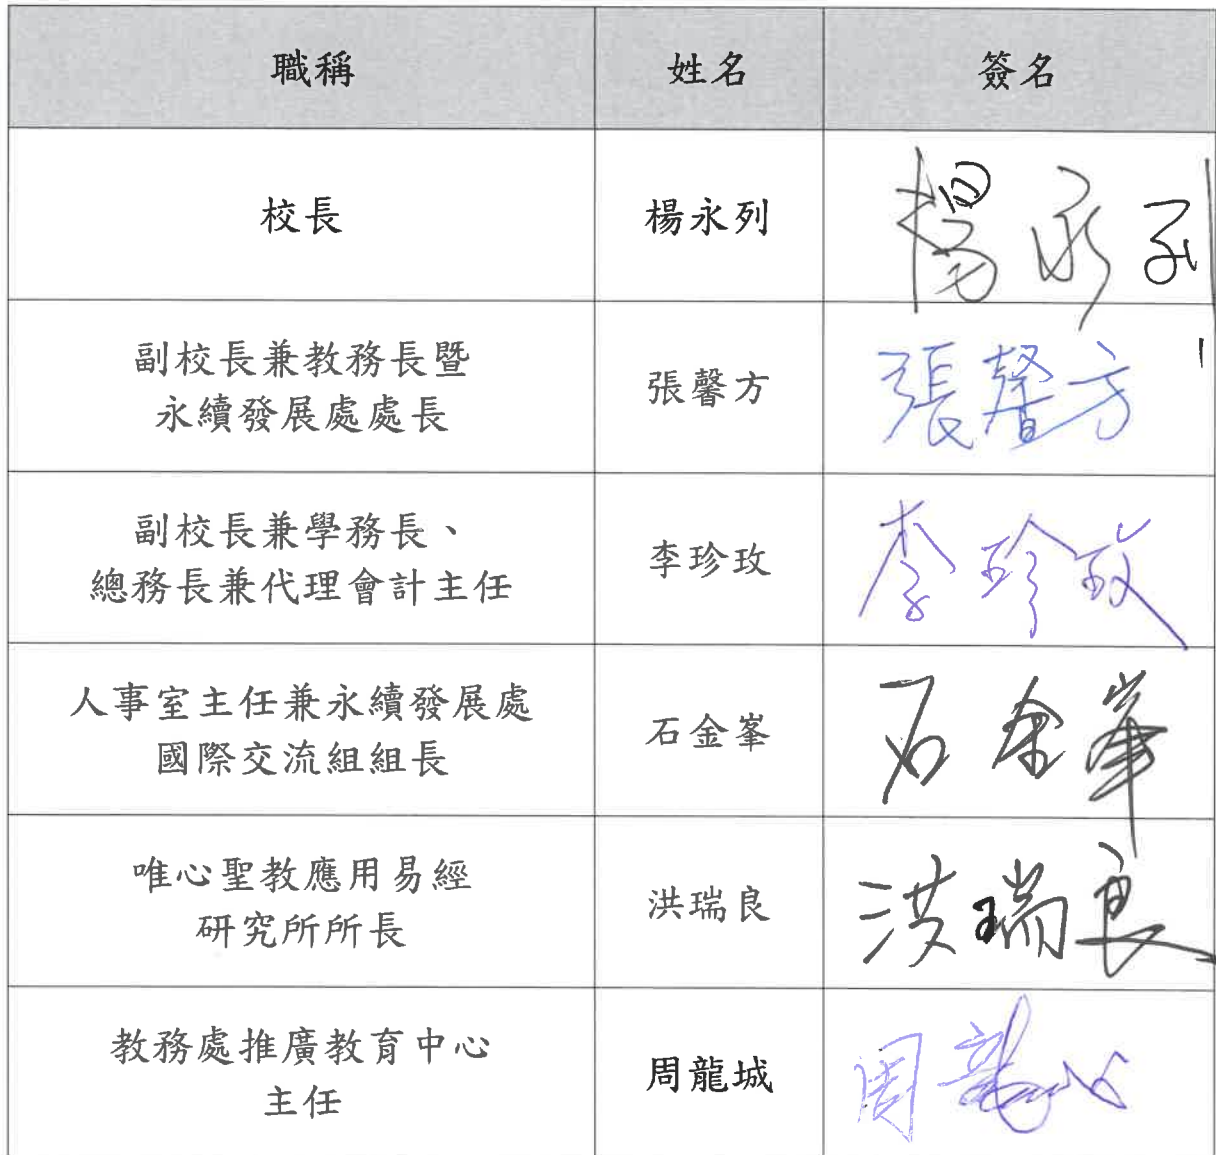 職稱 姓名 簽名
校長 楊永列 楊永列
副校長兼教務長暨
永續發展處處長 張馨方 張馨方
副校長兼學務長、
總務長兼代理會計主任 李珍玫 李珍玫
人事室主任兼永續發展處
國際交流組組長 石金峯 石金峯
唯心聖教應用易經
研究所所長 洪瑞良 洪瑞良
教務處推廣教育中心
主任 周龍城 周龍